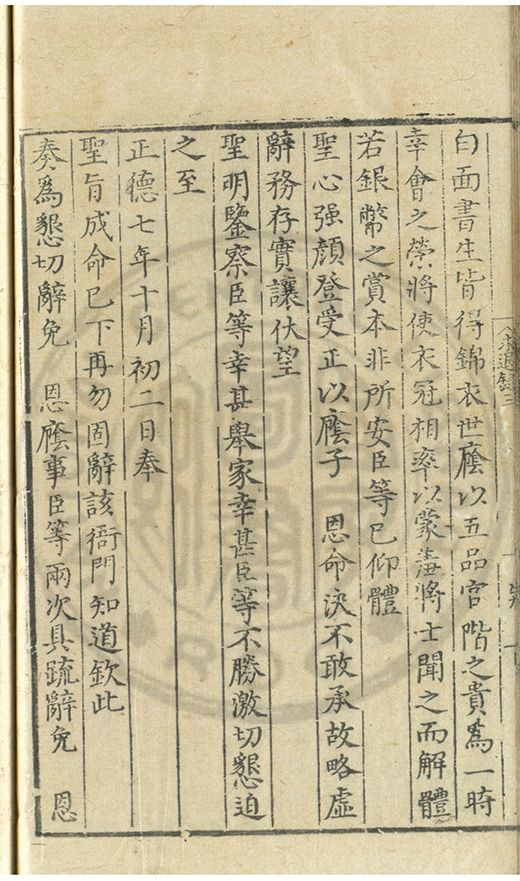 白面書生皆得錦衣世廕以五品官階之貴爲一時
幸會之榮將使衣冠相率以蒙羞將士聞之而解體
若銀幣之賞本非所安臣等已仰體
聖心强顔登受正以廕子　恩命決不敢承故略虛
辭務存實讓伏望
聖明鑒察臣等幸甚舉家幸甚臣等不勝激切懇迫
之至
正德七年十月初二日奉
聖旨成命已下再勿固辭該衙門知道欽此
奏爲懇切辭免　恩廕事臣等兩次具疏辭免　恩